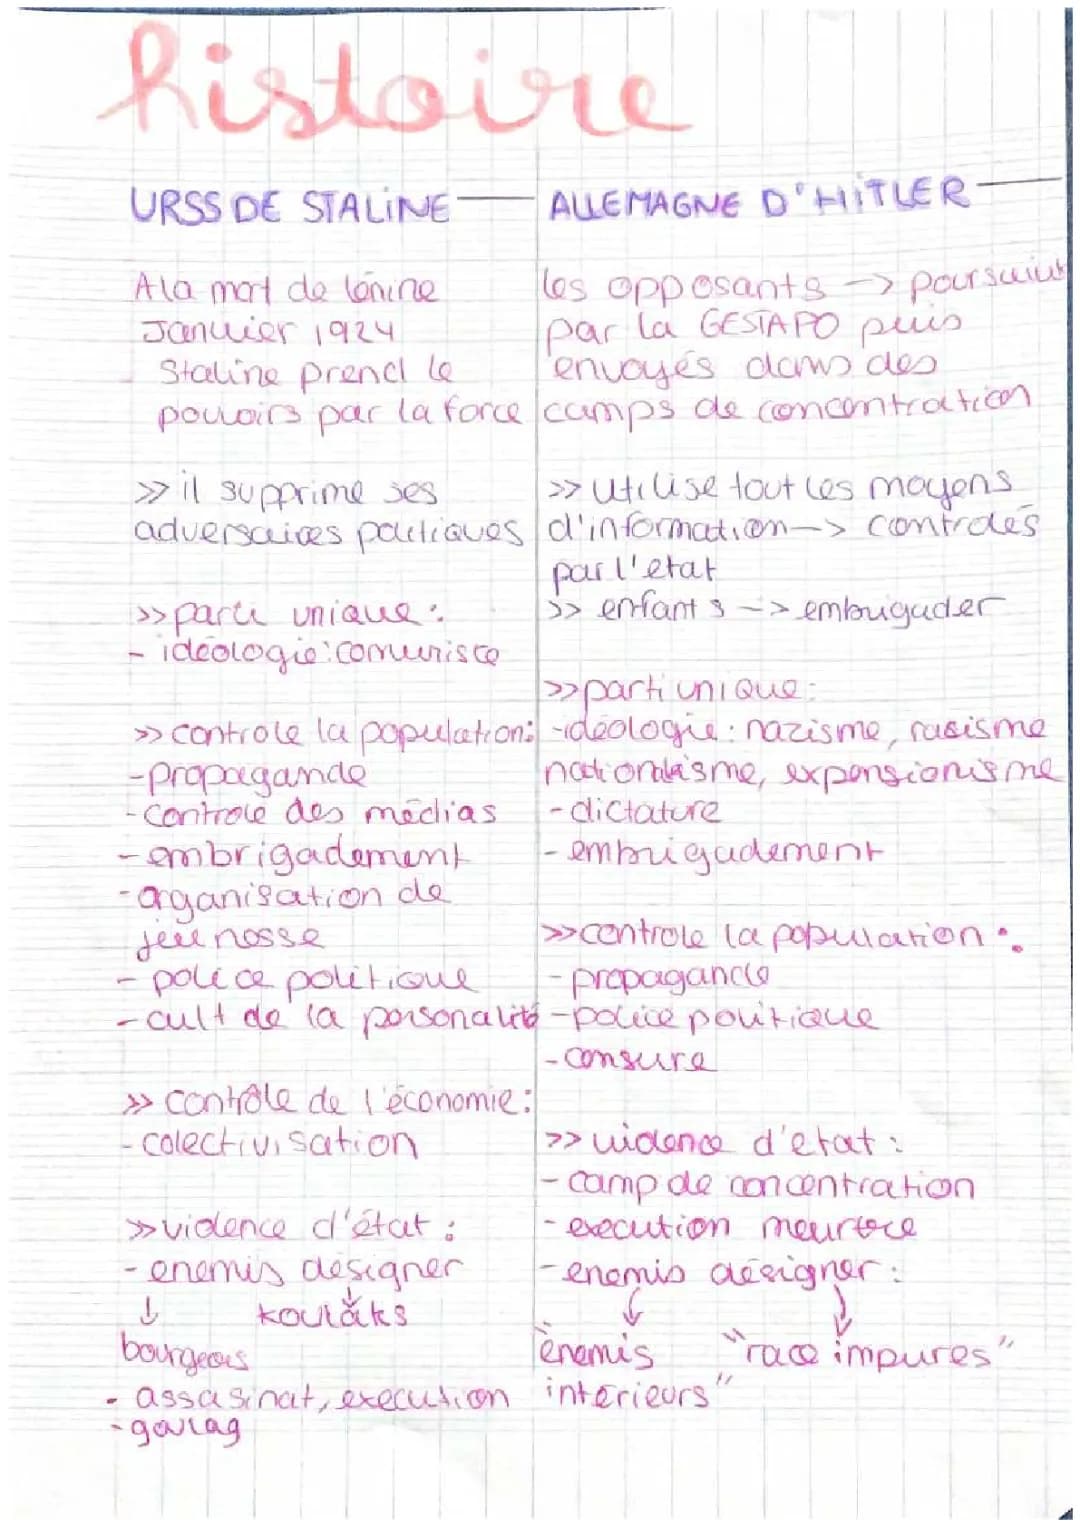 histoire
URSS DE STALINE
A la mort de lénine
Janvier 1924
Staline prend le
pouvoirs par la force
>> il supprime ses
adversaires politiques
>> parti unique :
- idéologie : comuniste
>> controle la population :
- propagande
- controle des médias
- embrigadement
- organisation de
jeunesse
- police politique
- cult de la personalité
>> contrôle de l'économie :
- colectivisation
>> violence d'état :
- enemis désigner
↓ koulaks
bourgeois
- assasinat, execution
- goulag
ALLEMAGNE D'HITLER
les opposants -> poursuivit
par la GESTAPO puis
envoyés dans des
camps de concentration
>> utilise tout les moyens
d'information -> controlés
par l'etat
>> enfants -> embrigader
>> parti unique :
- idéologie : nazisme, rasisme
nationalisme, expensionisme
- dictature
- embrigadement
>> controle la population :
- propagande
- police politique
- censure
>> violence d'etat :
- camp de concentration
- execution meurtre
- enemis désigner :
"enemis "race impures"
interieurs"